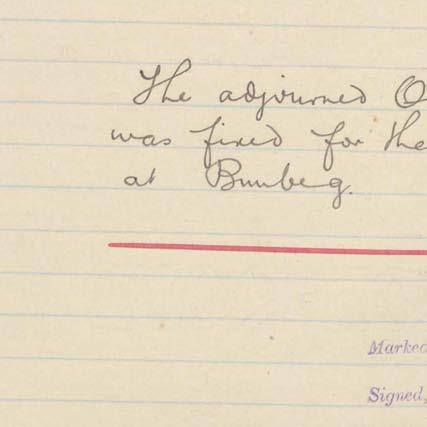 The adjourned O
was fixed for the
at Bunbeg.
Marked
Signed,